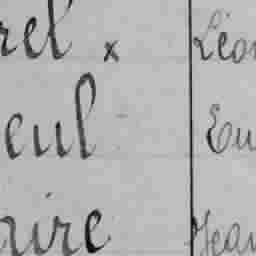 rel x Léon
eul Eu
aire Jean